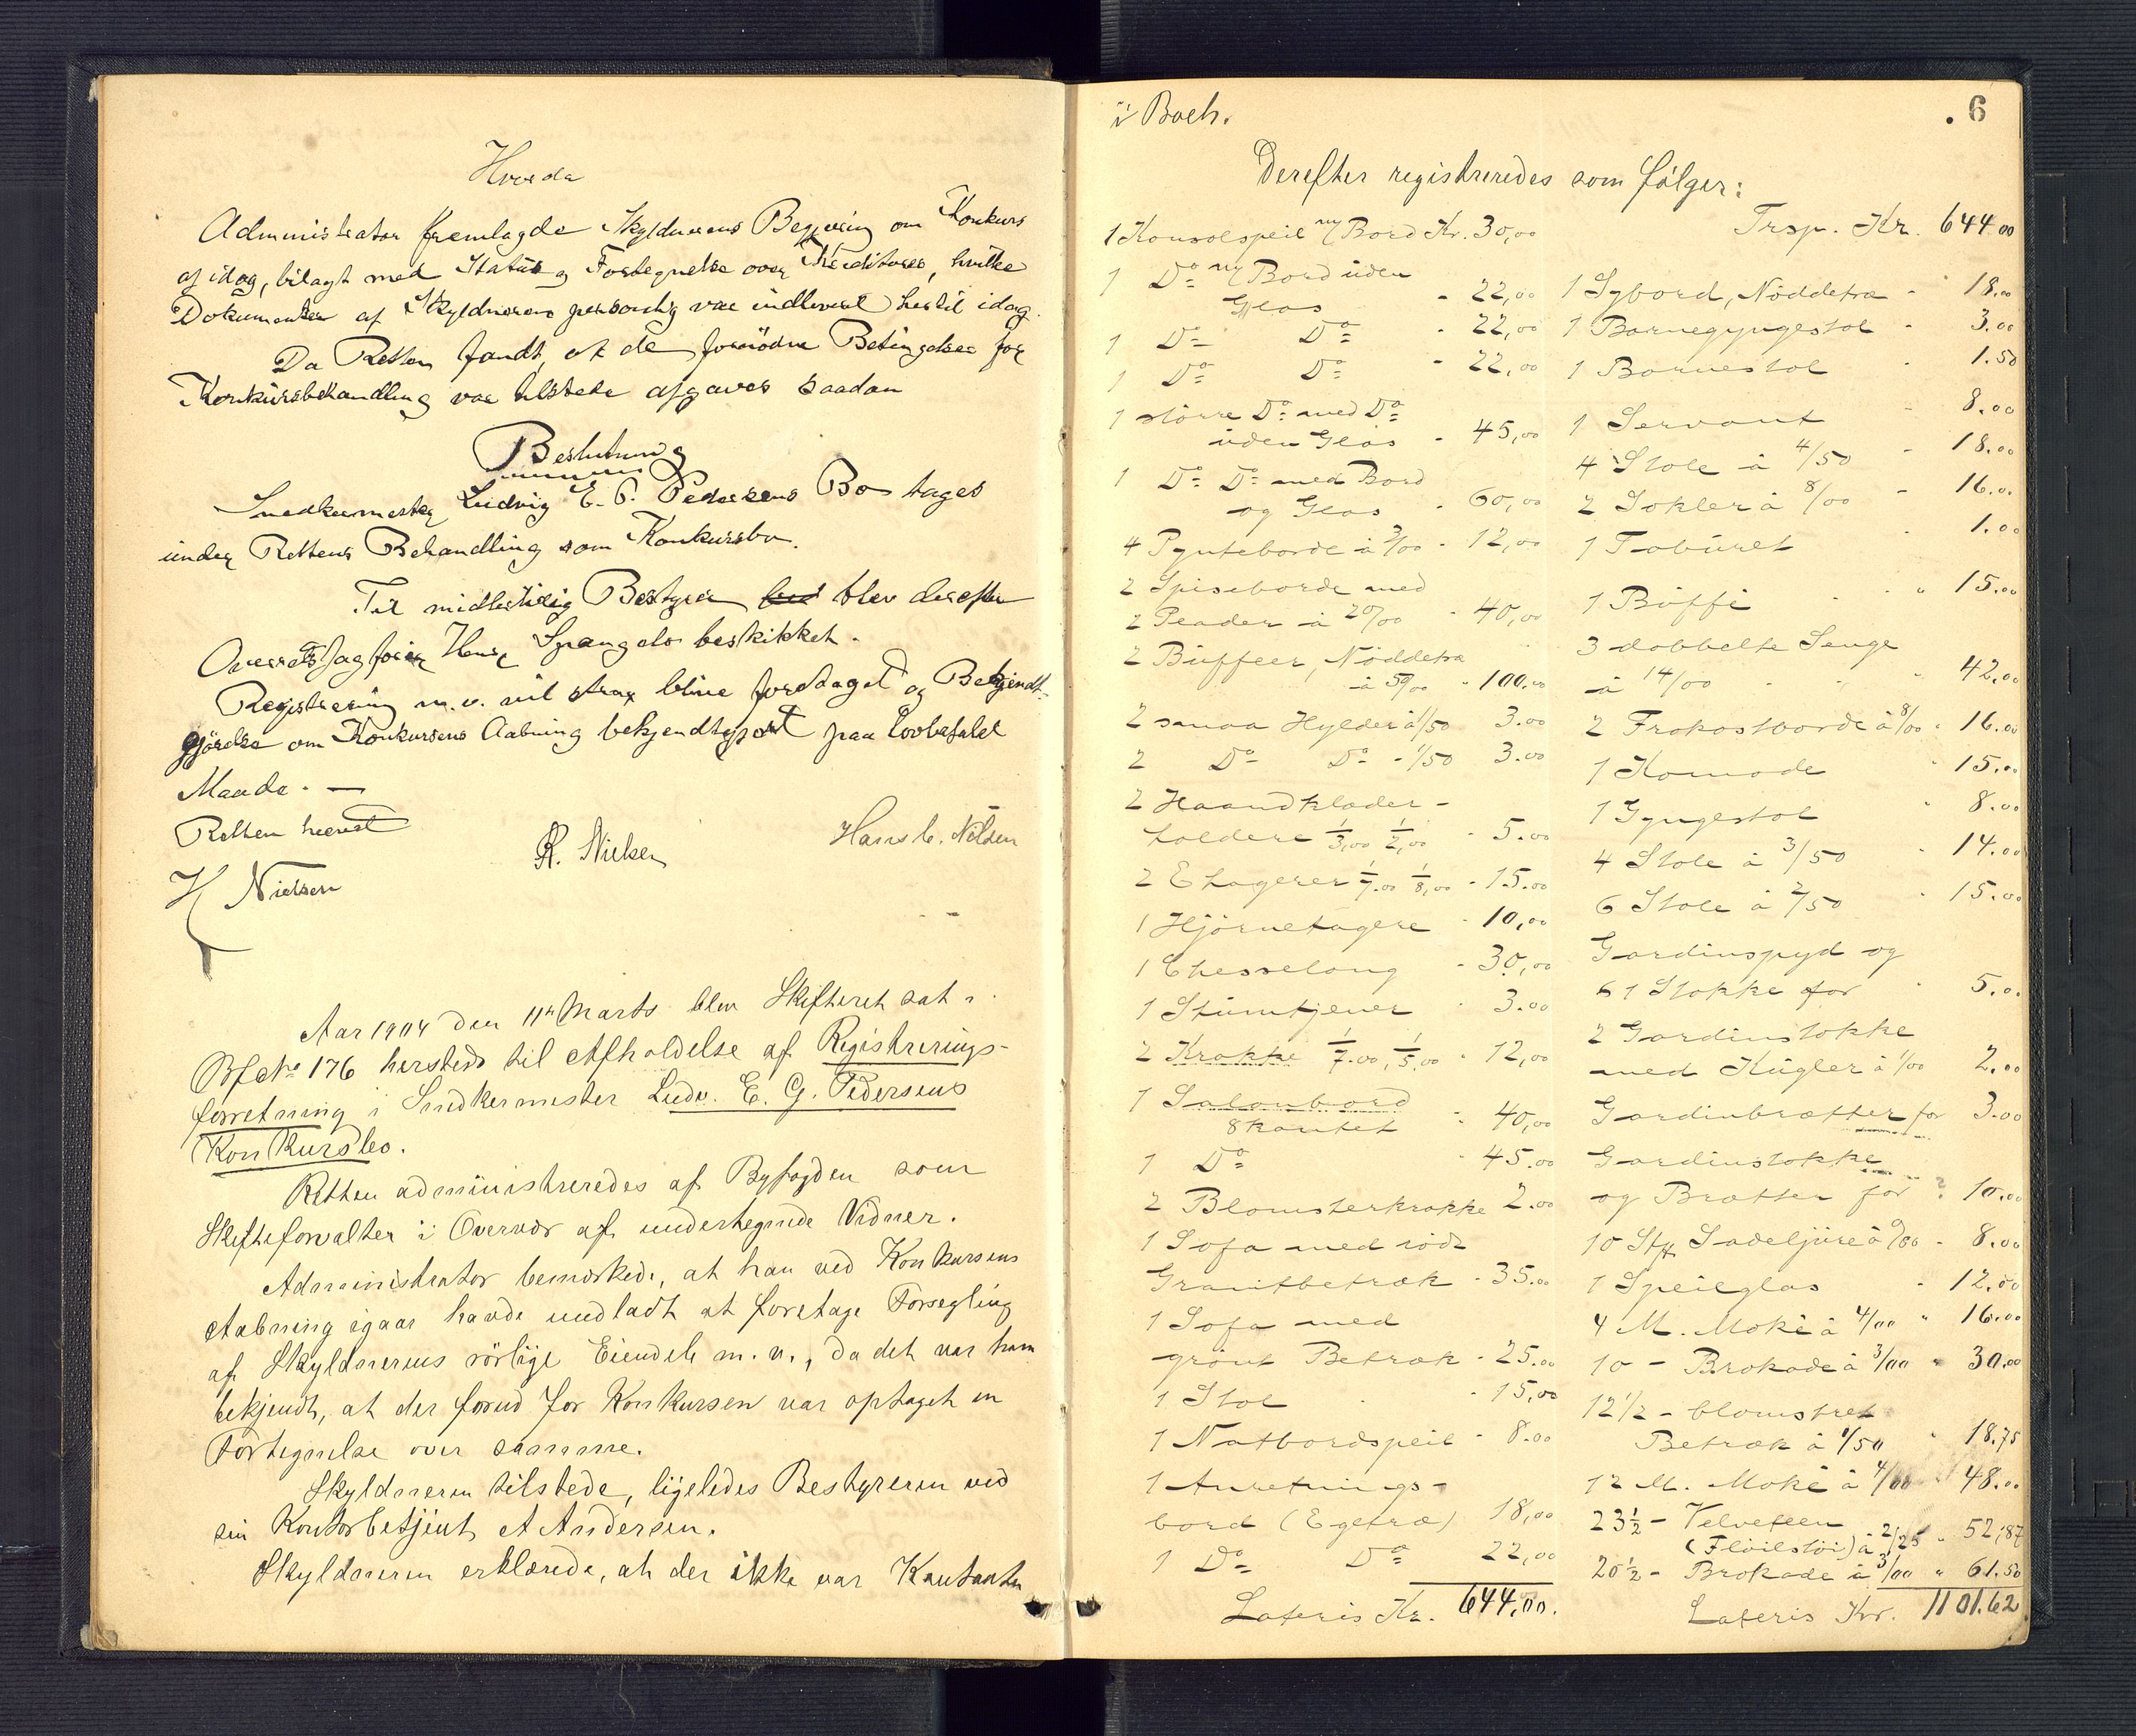 Hvorda
Administrator fremlagde Skyldnerens Begjæring om Konkurs
af idag, bilagt med Status og Fortegnelse over Kreditorer, hvilke
Dokumenter af Skyldneren personlig var indleveret hertil idag.
Da Retten fandt, at de fornödne Betingelser for
Konkursbehandling var tilstede afgaves saadan
Beslutning
Snedkermester Ludvig E. G. Pedersens Bo tages
under Rettens Behandling som Konkursbo.
Til midlertidig Bestyrer blev derefter
Overretssagförer Hans Spangelo beskikket.
Registrering m.v. vil strax blive foredaget og Bekjendt-
gjörelse om Konkursens Aabning bekjendtgjort paa lovbefalet
Maade. —
Retten hævet
H Nielsen
R. Nielsen
Hans C. Nilsen
Aar 1904 den 11te Marts blev Skifteret sat i
Bf No 176 hersteds til Afholdelse af Registrerings-
forretning i Snedkermester Ludv. E. G. Pedersens
Konkursbo.
Retten administreredes af Byfogden som
Skifteforvalter i Overvær af undertegnede Vidner.
Administrator bemærkede, at han ved Konkursens
Aabning igaar havde undladt at foretage Forsegling
af Skyldnerens rörlige Eiendele m.v., da det var ham
bekjendt, at der forud for Konkursen var optaget en
Fortegnelse over samme.
Skyldneren tilstede, ligeledes Bestyreren ved
sin Kontorbetjent A Andersen.
Skyldneren erklærede, at der ikke var Kontanter
i Boet.
6
Derefter registreredes som fölger:
1 Konsolspeil m/ Bord Kr. 30,00
1 Do m/ Bord uden
Glas - 22,00
1 Do Do - 22,00
1 Do Do - 22,00
1 större Do med Do
uden Glas - 45,00
1 Do Do med Bord
og Glas - 60,00
4 Pynteborde à 3/00 - 12,00
2 Spiseborde med
2 Plader à 20/00 - 40,00
2 Büffeer, Nöddetræ
à 50/00 - 100.00
2 smaa Hylder à 1/50 3.00
2 Do Do - 1/50 3.00
2 Haandklæder-
holdere 1/3,00 1/2,00 - 5.00
2 Etagerer 1/7.00 1/8,00 - 15.00
1 Hjörnetagere - 10,00
1 Chesselong - 30,00
1 Stümtjener - 3.00
2 Krakke 1/7.00, 1/5,00 - 12,00
1 Salonbord
8kantet - 40,00
1 Do - 45.00
2 Blomsterkrakke 2.00
1 Sofa med rödt
Granitbetræk - 35.00
1 Sofa med
grönt Betræk - 25.00
1 Stol - 15,00
1 Natbordspeil - 8.00
1 Anretnings-
bord (Egetræ) 18,00
1 Do Do 22,00
Lateris Kr. 644,00.
Trsp. Kr. 644.00
1 Sybord, Nöddetræ - 18.00
1 Barnegyngestol - 3.00
1 Barnestol - 1.50
1 Servant - 8.00
4 Stole à 4/50 - 18.00
2 Sokler à 8/00 - 16.00
1 Taburet - 1.00
1 Büffé - 15.00
3 dobbelte Senge
à 14/00 - 42,00
2 Frokostborde à 8/00 - 16.00
1 Komode - 15.00
1 Gyngestol - 8.00
4 Stole à 3/50 - 14.00
6 Stole à 2/50 - 15.00
Gardinspyd og
61 Stokke for - 5.00
2 Gardinstokke
med Kugler à 1/00 2.00
Gardinbrætter for 3.00
Gardinstokke
og Brætter for 10.00
10 Stk Sadeljüre à 0/80 - 8.00
1 Speilglas - 12.00
4 M. Moké à 4/00 " 16.00
10 - Brokade à 3/00 " 30.00
12 1/2 - blomstret
Betræk à 1/50 " 18.75
12 M. Moké à 4/00 " 48.00
23 1/2 - Velveteen
(Flöilstöi) à 2/25 " 52,87
20 1/2 - Brokade à 3/00 " 61.50
Lateris Kr. 1101.62